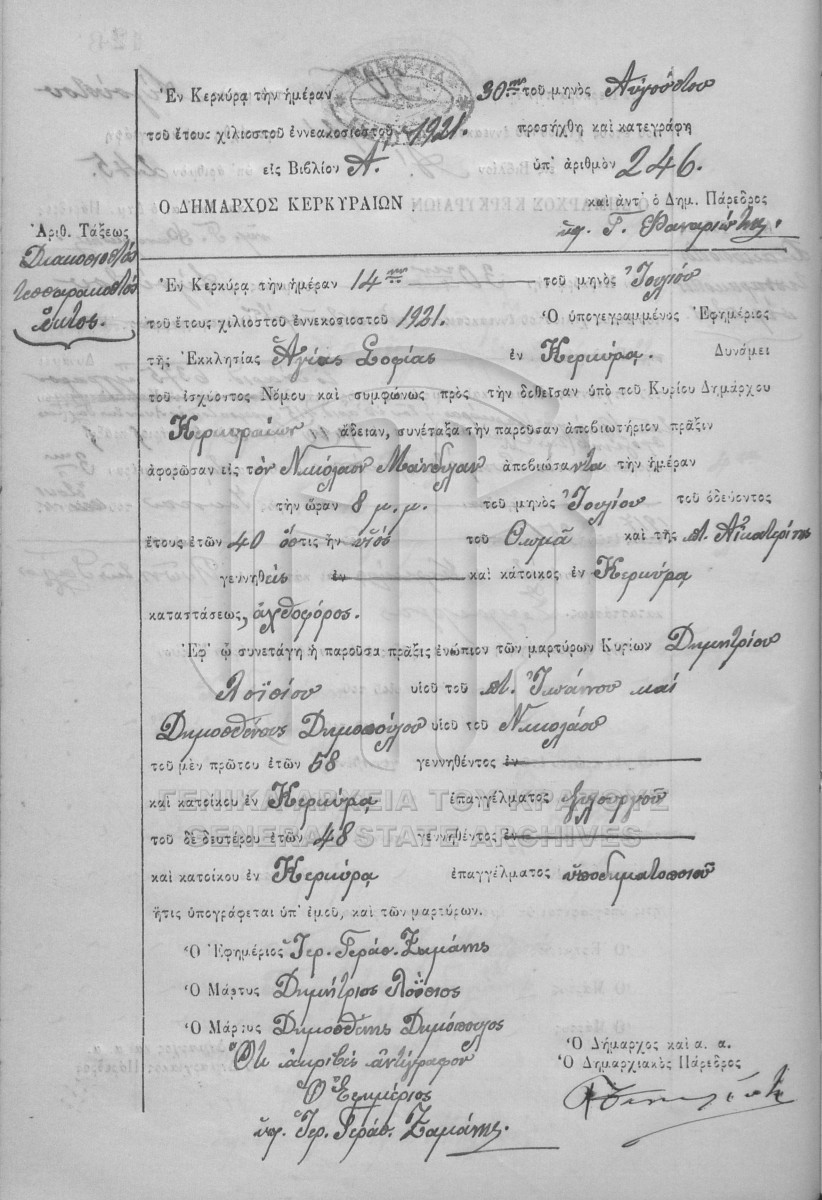 Ἐν Κερκύρᾳ τὴν ἡμέραν 30ην τοῦ μηνὸς Αὐγούστου
τοῦ ἔτους χιλιοστοῦ ἐννεακοσιοστοῦ 1921. προσήχθη καὶ κατεγράφη
εἰς Βιβλίον Α΄. ὑπ᾽ ἀριθμὸν 246.
Ὁ ΔΗΜΑΡΧΟΣ ΚΕΡΚΥΡΑΙΩΝ καὶ ἀντ᾽ ὁ Δημ. Πάρεδρος
ὑπ. Γ. Φαναριώτης.
Ἀριθ. Τάξεως
Διακοσιοστός
τεσσαρακοστός
ἕκτος.
Ἐν Κερκύρᾳ τὴν ἡμέραν 14ην τοῦ μηνὸς Ἰουλίου
τοῦ ἔτους χιλιοστοῦ ἐννεκοσιοστοῦ 1921. Ὁ ὑπογεγραμμένος Ἐφημέριος
τῆς Ἐκκλησίας Ἁγίας Σοφίας ἐν Κερκύρᾳ. Δυνάμει
τοῦ ἰσχύοντος Νόμου καὶ συμφώνως πρὸς τὴν δοθεῖσαν ὑπὸ τοῦ Κυρίου Δημάρχου
Κερκυραίων ἄδειαν, συνέταξα τὴν παροῦσαν ἀποβιωτήριον πρᾶξιν
ἀφορῶσαν εἰς τὸν Νικόλαον Μάνδυλαν ἀποβιώσαντα τὴν ἡμέραν
τὴν ὥραν 8 μ. μ. τοῦ μηνὸς Ἰουλίου τοῦ ὁδεύοντος
ἔτους ἐτῶν 40 ὅστις ἦν υἱός τοῦ Θωμᾶ καὶ τῆς Αἰκατερίνης
γεννηθεὶς ἐν καὶ κάτοικος ἐν Κερκύρᾳ
καταστάσεως, ἀχθοφόρος.
Ἐφ᾽ ᾧ συνετάγη ἡ παροῦσα πρᾶξις ἐνώπιον τῶν μαρτύρων Κυρίων Δημητρίου
Λοϊσίου υἱοῦ τοῦ Ἰωάννου καὶ
Δημοσθένους Δημοπούλου υἱοῦ τοῦ Νικολάου
τοῦ μὲν πρώτου ἐτῶν 58 γεννηθέντος ἐν
καὶ κατοίκου ἐν Κερκύρᾳ ἐπαγγέλματος ξυλουργοῦ
ΓΕΝΙΚΑ ΑΡΧΕΙΑ ΤΟΥ ΚΡΑΤΟΥΣ
GENERAL STATE ARCHIVES
τοῦ δὲ δευτέρου ἐτῶν 48 γεννηθέντος ἐν
καὶ κατοίκου ἐν Κερκύρᾳ ἐπαγγέλματος ὑποδηματοποιοῦ
ἥτις ὑπογράφεται ὑπ᾽ ἐμοῦ, καὶ τῶν μαρτύρων.
Ὁ Ἐφημέριος Ἱερ. Γεράσ. Ζαμάνης
Ὁ Μάρτυς Δημήτριος Λοΐσιος
Ὁ Μάρτυς Δημοσθένης Δημόπουλος
Ὅτι ἀκριβὲς ἀντίγραφον
Ὁ Δήμαρχος καὶ α. α.
Ὁ Δημαρχιακὸς Πάρεδρος
Ὁ Ἐφημέριος
ὑπ. Ἱερ. Γεράσ. Ζαμάνης.